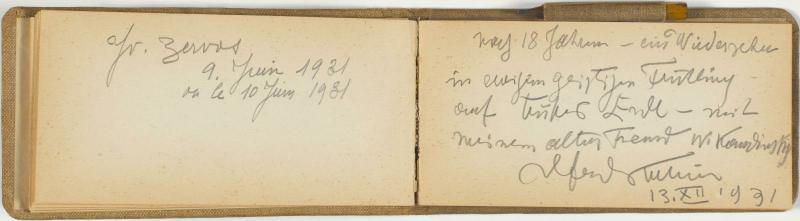 Chr. Zervos
9. Juin 1931
ou le 10 Juin 1931
nach 18 Jahren – ein Wiedersehn
in ewigem geistigen Frühling –
auf Erde – mit
meinem alten Freund W. Kandinsky
Alfred
13. XII 1931